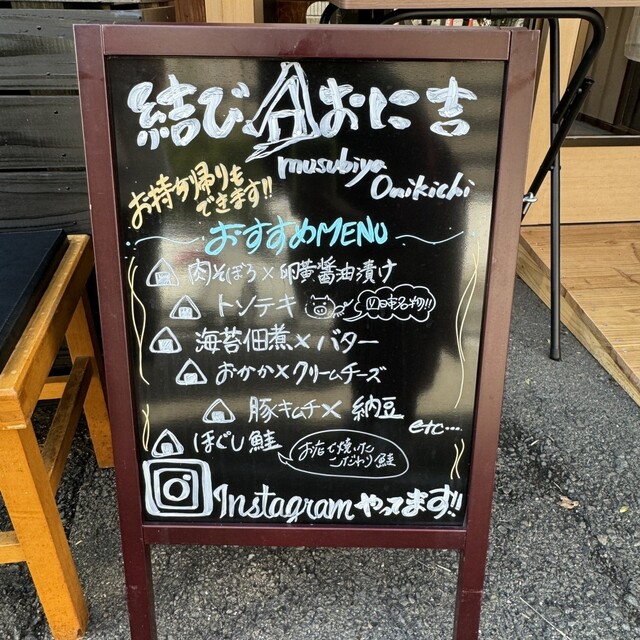 結び おに吉
musubiya
Onikichi
お持ち帰りも
できます!!
おすすめMENU
肉そぼろ×卵黄醤油漬け
トンテキ 四日市名物!!
海苔佃煮×バター
おかか×クリームチーズ
豚キムチ×納豆
etc....
ほぐし鮭
お店で焼いた
こだわり鮭
Instagramやってます!!